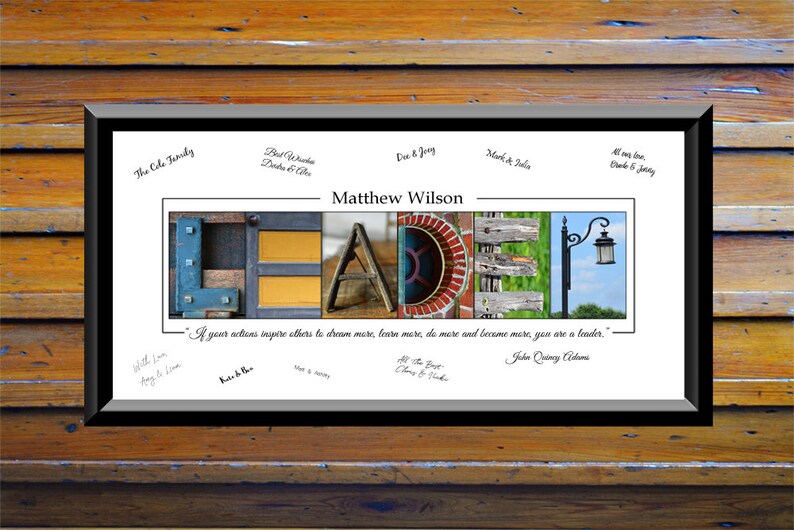 The Cole Family
Best Wishes
Deidra & Alex
Dee & Joey
Mark & Julia
All our love,
& Jenny
Matthew Wilson
LEADER
“If your actions inspire others to dream more, learn more, do more and become more, you are a leader.”
John Quincy Adams
With Love,
Amy & Liam
Kate & Ben
Matt & Ashley
All The Best
Chris & Vicki